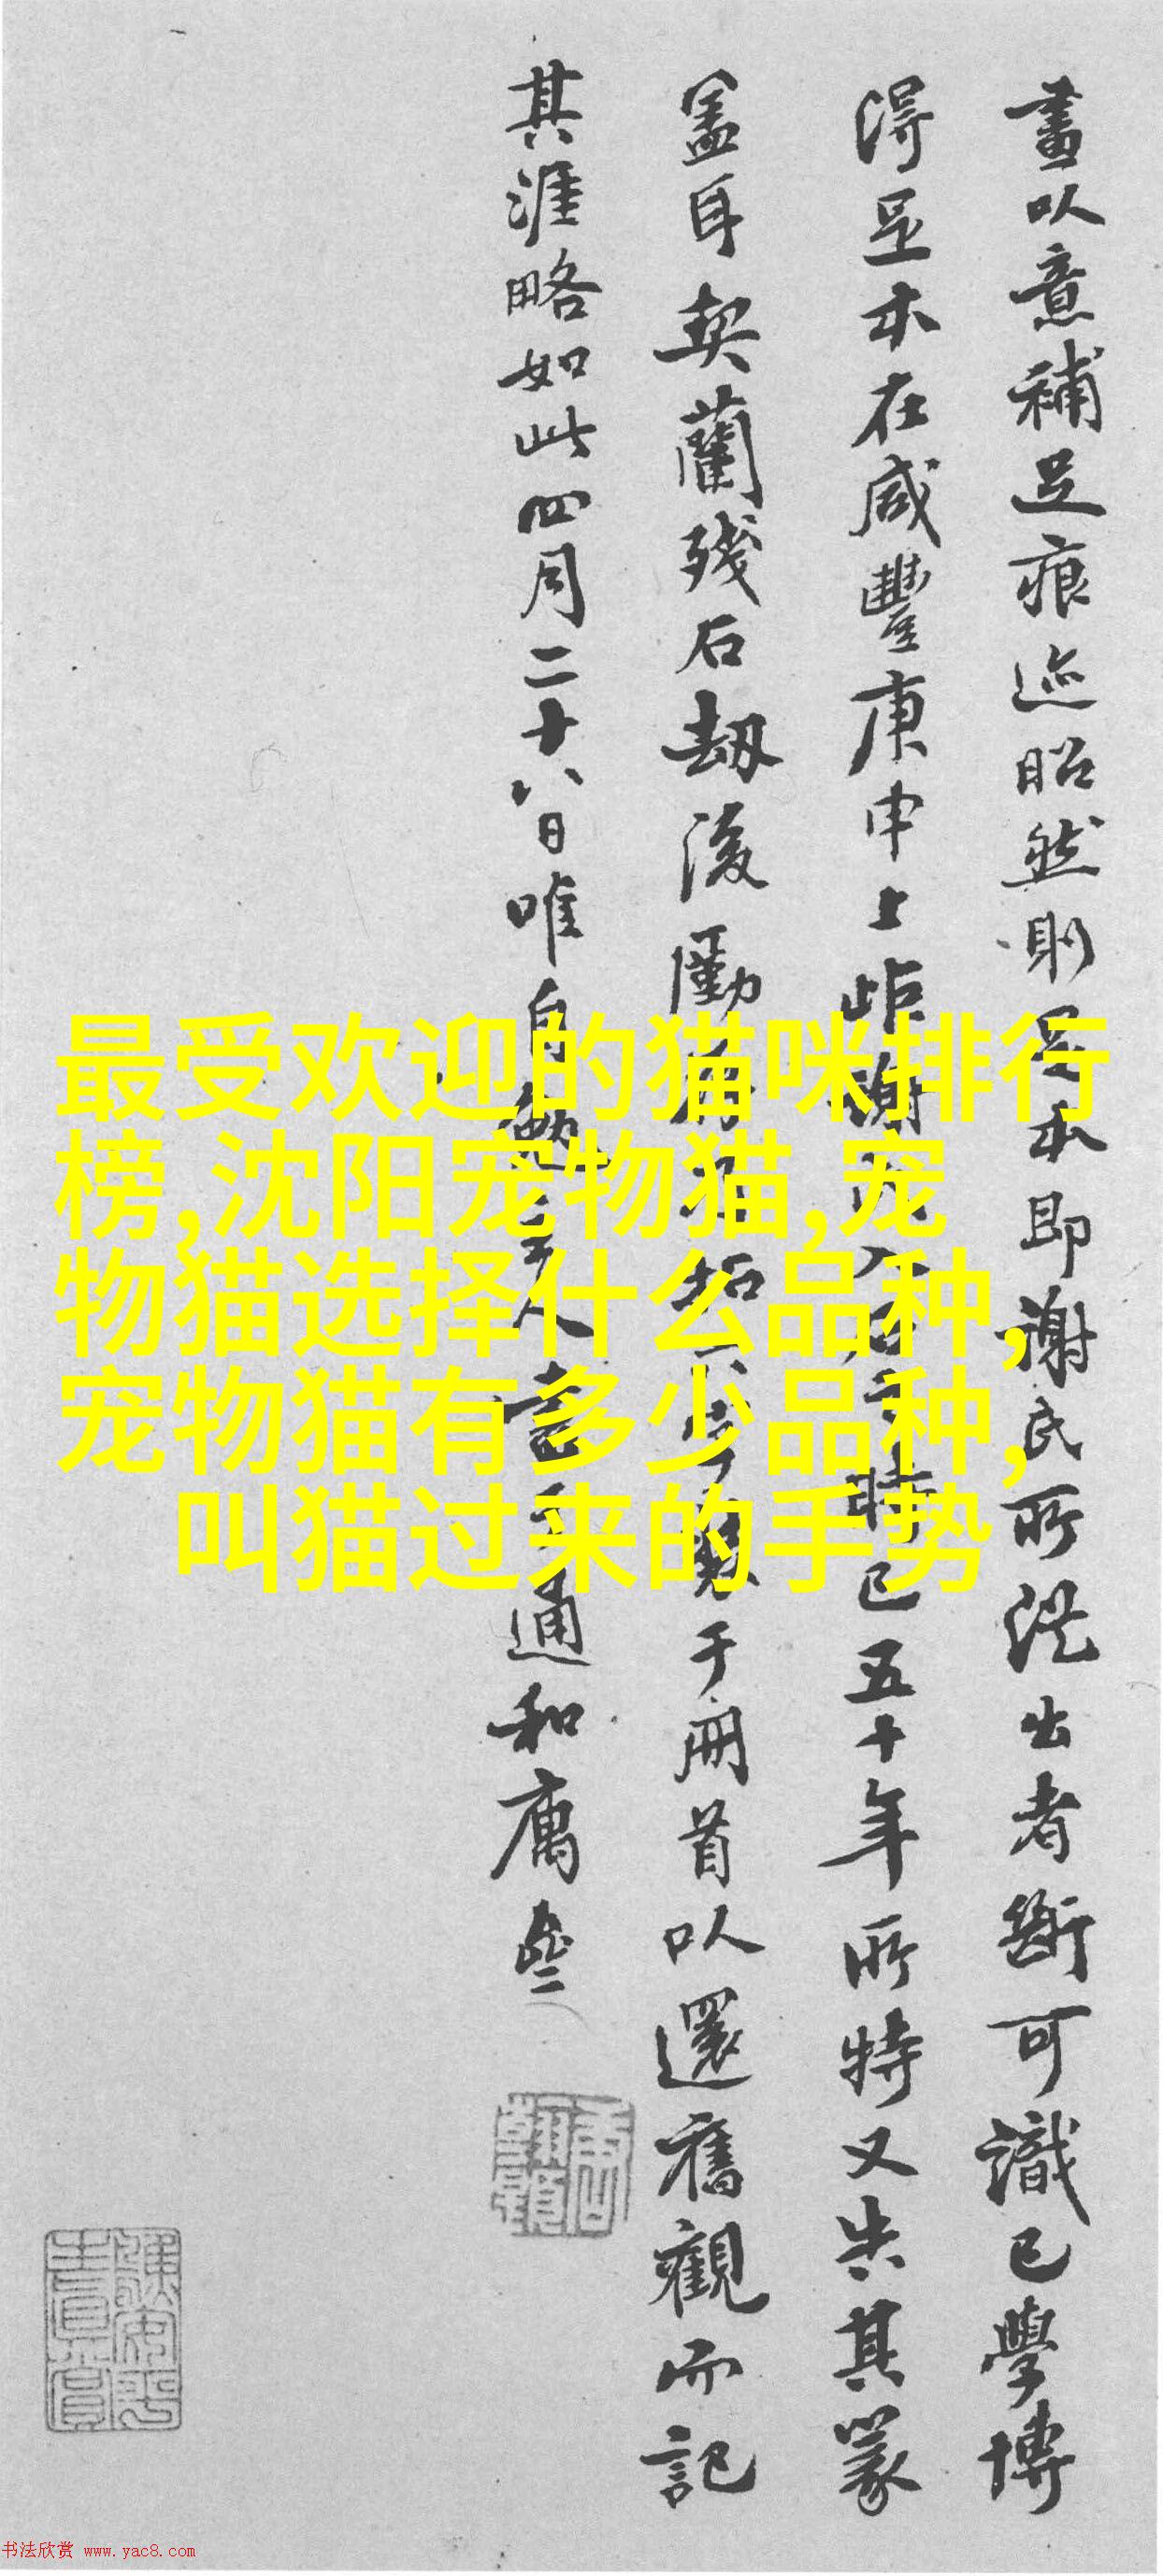 畫以意補足痕迹昭然則足本即謝氏所洗出者斷可識已學博
得足本在咸豐庚申上距謝
時已五十年所特又失其篆
蓋耳契蘭殘石劫後
于冊首以還舊觀而記
其涯略如此四月二十八日唯自勉
人書于通和庽
最受欢迎的猫咪排行
榜,沈阳宠物猫,宠
物猫选择什么品种,
宠物猫有多少品种,
叫猫过来的手势
书法欣赏 www.yac8.com